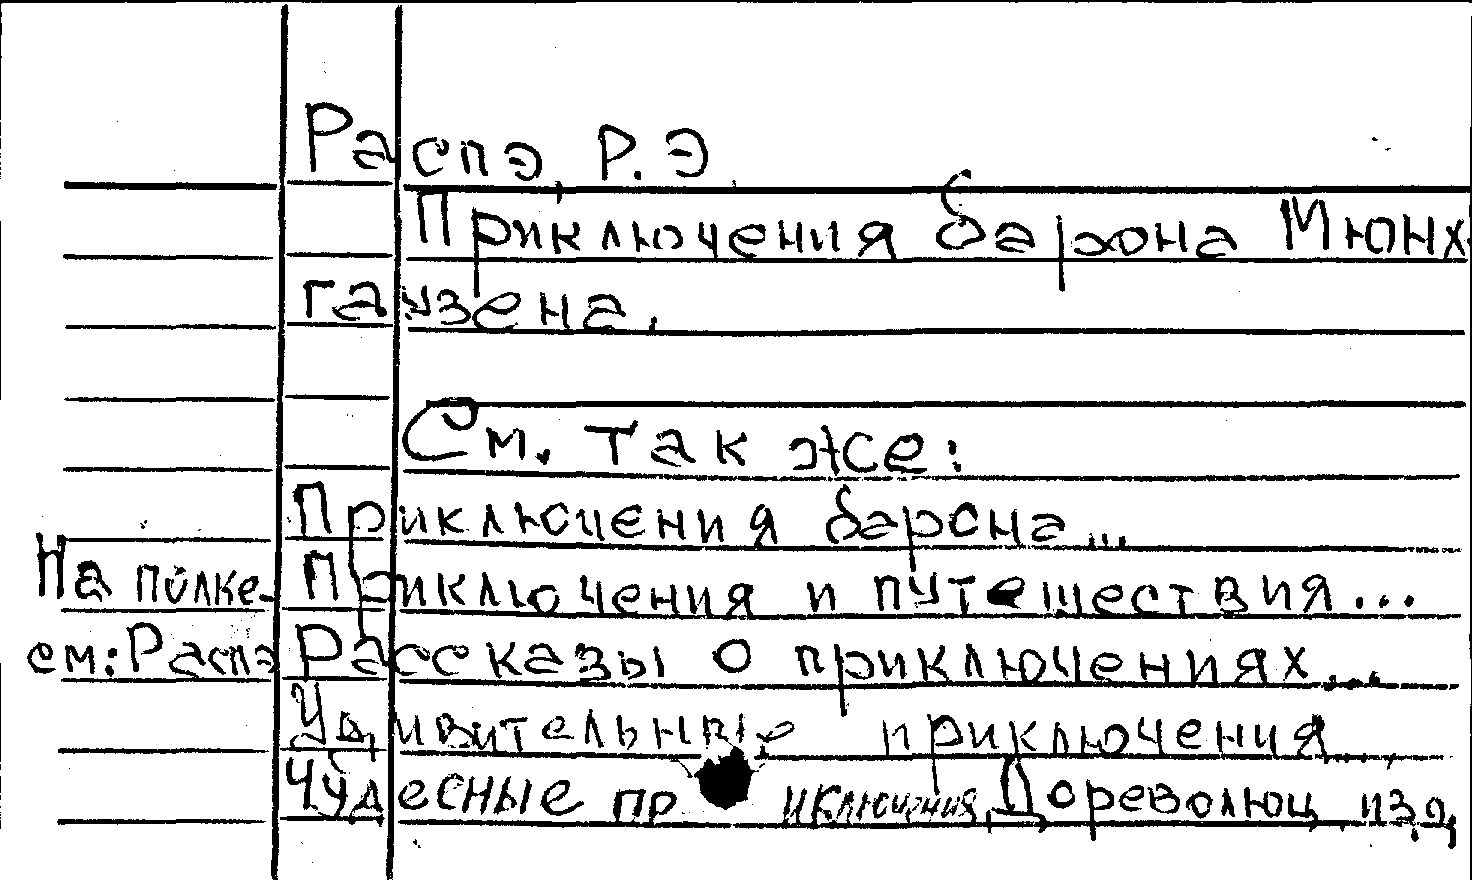 Распэ, Р. Э.
Приключения барона Мюнх-
гаузена.
См. так же:
Приключения барона...
На полке- Приключения и путешествия...
см: Распэ Рассказы о приключениях...
Удивительные приключения...
Чудесные приключения. Дореволюц. изд.